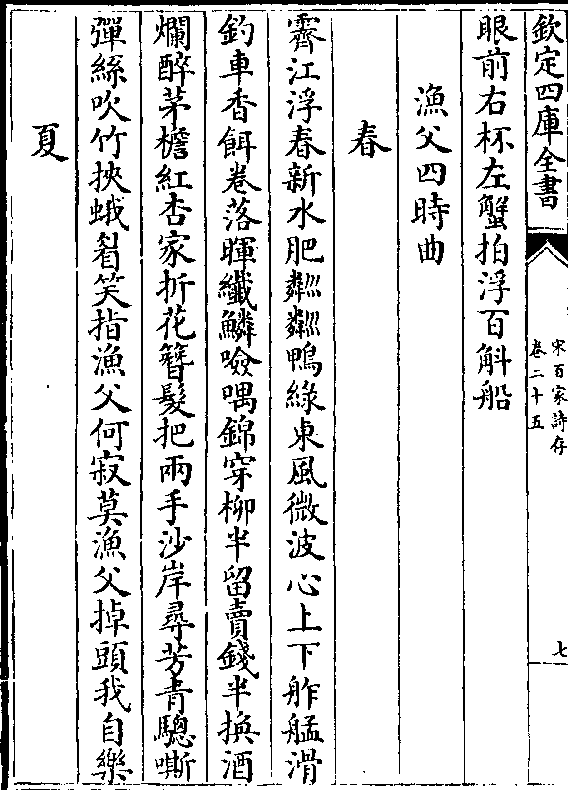 欽定四庫全書
宋百家詩存
卷二十五
七
眼前右杯左蟹拍浮百斛船
漁父四時曲
春
霽江浮春新水肥粼粼鴨綠東風微波心上下舴艋滑
釣車香餌卷落暉纖鱗噞喁錦穿柳半留賣錢半換酒
爛醉茅檐紅杏家折花簪髮把兩手沙岸尋芳青驄嘶
彈絲吹竹挾蛾眉笑指漁父何寂莫漁父掉頭我自樂
夏